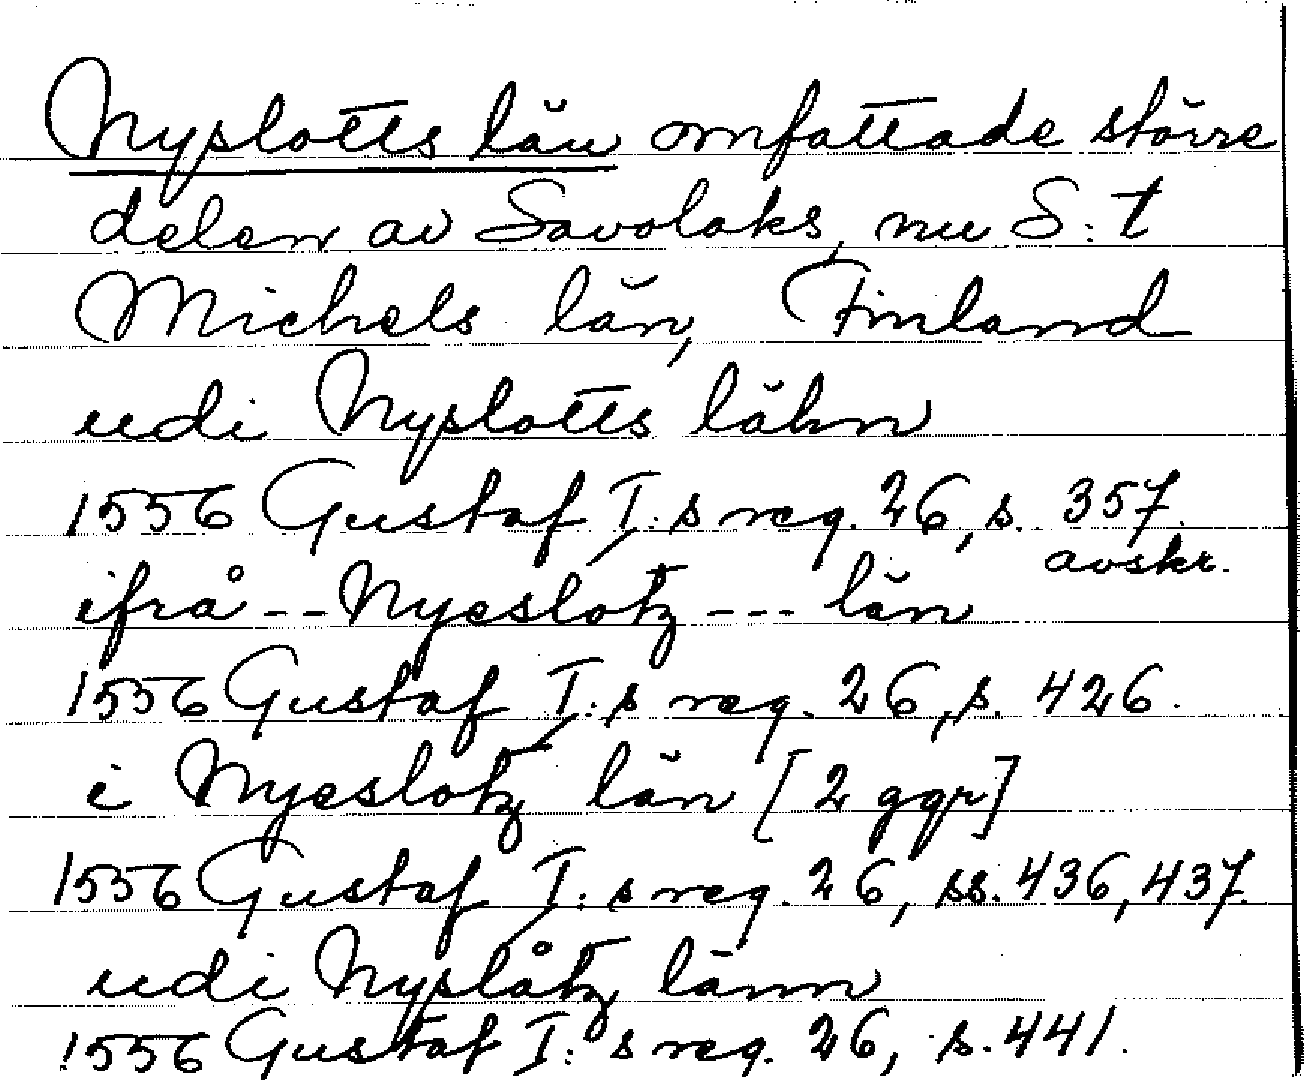 Nyslotts län omfattade större
delen av Savolaks, nu S:t
Michels län, Finland
udi Nyslotts lähn
1556 Gustaf I:s reg. 26, s. 357.
avskr.
ifrå -- Nyeslotz --- län
1556 Gustaf I:s reg. 26, s. 426.
i Nyeslotz län [2 ggr]
1556 Gustaf I:s reg. 26, ss. 436, 437.
udi Nyslåtz länn
1556 Gustaf I:s reg. 26, s. 441.